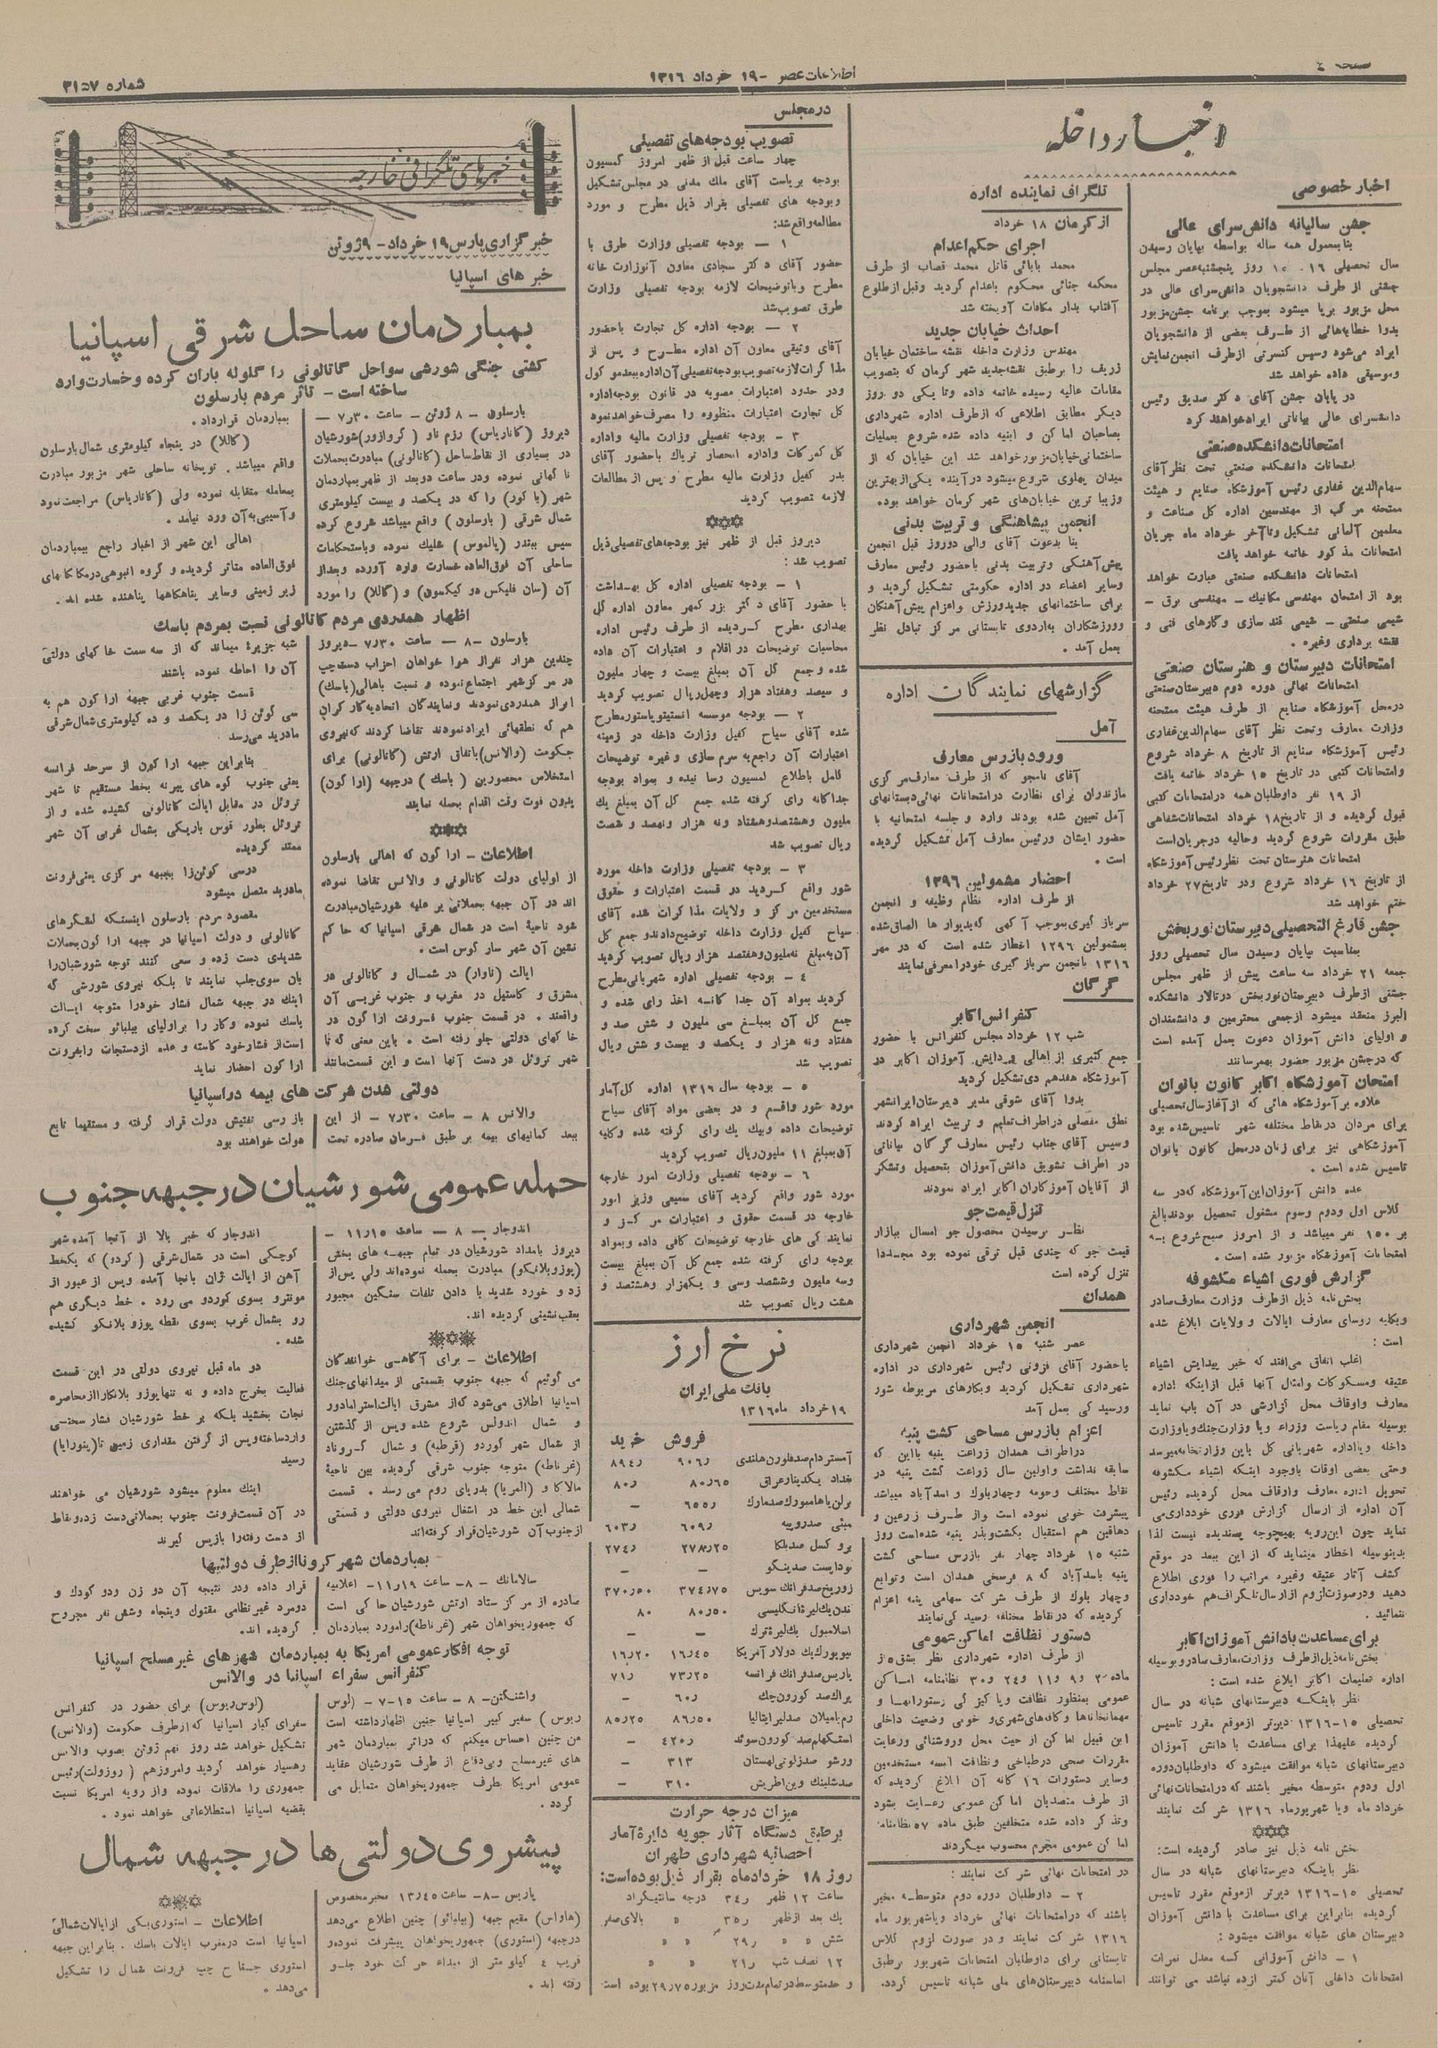 صفحه ٤
اطلاعات عصر - ۱۹ خرداد ۱۳۱۶
شماره ۳۱۵۷
اخبار داخله
اخبار خصوصی
جشن سالیانه دانش‌سرای عالی
بنا بمعمول همه ساله بواسطه بپایان رسیدن
محل مزبور برپا میشود بموجب برنامه جشن مزبور
بدوا خطابه‌هائی از طرف بعضی از دانشجویان
ایراد می‌شود وسپس کنسرتی ازطرف انجمن نمایش
وموسیقی داده خواهد شد
در پایان جشن آقای دکتر صدیق رئیس
دانشسرای عالی بیاناتی ایراد خواهند کرد
امتحانات دانشکده صنعتی
امتحانات دانشکده صنعتی تحت نظر آقای
سهام‌الدین غفاری رئیس آموزشگاه صنایع و هیئت
ممتحنه مرکب از مهندسین اداره کل صناعت و
معلمین آلمانی تشکیل وتا آخر خرداد ماه جریان
امتحانات مذکور خاتمه خواهد یافت
امتحانات دانشکده صنعتی عبارت خواهد
بود از امتحان مهندسی مکانیک - مهندسی برق -
شیمی صنعتی - شیمی قند سازی وکارهای فنی و
نقشه برداری وغیره .
امتحانات دبیرستان و هنرستان صنعتی
امتحانات نهائی دوره دوم دبیرستان صنعتی
درمحل آموزشگاه صنایع از طرف هیئت ممتحنه
وزارت معارف وتحت نظر آقای سهام‌الدین غفاری
رئیس آموزشگاه صنایع از تاریخ ۸ خرداد شروع
وامتحانات کتبی در تاریخ ۱۵ خرداد خاتمه یافت
از ۱۹ نفر داوطلبان همه درامتحانات کتبی
قبول گردیده و از تاریخ ۱۸ خرداد امتحانات شفاهی
طبق مقررات شروع گردید وحالیه درجریان است
امتحانات هنرستان تحت نظر رئیس آموزشگاه
از تاریخ ۱۶ خرداد شروع ودر تاریخ ۲۷ خرداد
ختم خواهد شد
جشن فارغ التحصیلی دبیرستان نوربخش
بمناسبت بپایان رسیدن سال تحصیلی روز
جمعه ۲۱ خرداد سه ساعت پیش از ظهر مجلس
جشنی ازطرف دبیرستان نوربخش درتالار دانشکده
البرز منعقد میشود ازجمعی محترمین و دانشمندان
و اولیای دانش آموزان دعوت بعمل آمده است
که درجشن مزبور حضور بهمرسانند
امتحان آموزشگاه اکابر کانون بانوان
علاوه بر آموزشگاه هائی که از آغاز سال تحصیلی
برای مردان درنقاط مختلفه شهر تاسیس شده بود
آموزشگاهی نیز برای زنان درمحل کانون بانوان
تاسیس شده است .
عده دانش آموزان این آموزشگاه که در سه
کلاس اول ودوم وسوم مشغول تحصیل بودند بالغ
بر ۱۵۰ نفر میباشد و از امروز صبح شروع به
امتحانات آموزشگاه مزبور شده است .
گزارش فوری اشیاء مکشوفه
بخش‌نامه ذیل ازطرف وزارت معارف صادر
وبکلیه روسای معارف ایالات و ولایات ابلاغ شده
است :
اغلب اتفاق می‌افتد که خبر پیدایش اشیاء
عتیقه ومسکوکات وامثال آنها قبل ازاینکه اداره
معارف واوقاف محل گزارشی در آن باب نماید
بوسیله مقام ریاست وزراء ویا وزارت جنگ ویا وزارت
داخله ویا اداره شهربانی کل باین وزارتخانه میرسد
وحتی بعضی اوقات باوجود اینکه اشیاء مکشوفه
تحویل اداره معارف واوقاف محل گردیده رئیس
آن اداره از ارسال گزارش فوری خودداری می
نماید چون این رویه بهیچوجه پسندیده نیست لذا
بدینوسیله اخطار مینماید که از این ببعد در موقع
کشف آثار عتیقه وغیره مراتب را فوری اطلاع
دهید ودرصورت لزوم ازارسال تلگراف هم خودداری
ننمائید .
برای مساعدت بادانش آموزان اکابر
بخش‌نامه ذیل ازطرف وزارت معارف صادر وبوسیله
اداره تعلیمات اکابر ابلاغ شده است :
نظر باینکه دبیرستانهای شبانه در سال
تحصیلی ۱۵-۱۳۱۶ دیرتر ازموقع مقرر تاسیس
گردیده علیهذا برای مساعدت با دانش آموزان
دبیرستانهای شبانه موافقت میشود که داوطلبان دوره
اول ودوم متوسطه مخیر باشند که درامتحانات نهائی
خرداد ماه ویا شهریورماه ۱۳۱۶ شرکت نمایند
بخش نامه ذیل نیز صادر گردیده است:
نظر باینکه دبیرستانهای شبانه در سال
تحصیلی ۱۵-۱۳۱۶ دیرتر ازموقع مقرر تاسیس
گردیده بنابراین برای مساعدت با دانش آموزان
دبیرستان های شبانه موافقت میشود :
۱ - دانش آموزانی که معدل نمرات
امتحانات داخلی آنان کمتر ازده نباشد می توانند
تلگراف نماینده اداره
از کرمان ۱۸ خرداد
اجرای حکم اعدام
محمد بابائی قاتل محمد قصاب از طرف
محکمه جنائی محکوم باعدام گردید وقبل ازطلوع
آفتاب بدار مکافات آویخته شد
احداث خیابان جدید
مهندس وزارت داخله نقشه ساختمان خیابان
ژریف را برطبق نقشه جدید شهر کرمان که بتصویب
مقامات عالیه رسیده خاتمه داده وتا یکی دو روز
دیگر مطابق اطلاعی که ازطرف اداره شهرداری
بصاحبان اماکن و ابنیه داده شده شروع بعملیات
ساختمانی خیابان مزبور خواهد شد این خیابان که از
میدان پهلوی شروع میشود درآینده یکی ازبهترین
وزیبا ترین خیابان‌های شهر کرمان خواهد بود.
انجمن پیشاهنگی و تربیت بدنی
بنا بدعوت آقای والی دوروز قبل انجمن
پیش‌آهنگی وتربیت بدنی باحضور رئیس معارف
وسایر اعضاء در اداره حکومتی تشکیل گردید و
برای ساختمانهای جدید ورزش واعزام پیش‌آهنگان
وورزشکاران به اردوی تابستانی مرکز تبادل نظر
بعمل آمد .
گزارشهای نمایندگان اداره
آمل
ورود بازرس معارف
آقای نامجو که از طرف معارف مرکزی
مازندران برای نظارت درامتحانات نهائی دبستانهای
آمل تعیین شده بودند وارد و جلسه امتحانیه با
حضور ایشان ورئیس معارف آمل تشکیل گردیده
است .
احضار مشمولین ۱۲۹۶
از طرف اداره نظام وظیفه و انجمن
سرباز گیری بموجب آگهی که بدیوار ها الصاق شده
بمشمولین ۱۲۹۶ اخطار شده است که در مهر
۱۳۱۶ بانجمن سرباز گیری خود را معرفی نمایند
گرگان
کنفرانس اکابر
شب ۱۲ خرداد مجلس کنفرانس با حضور
آموزشگاه هفدهم دی تشکیل گردید
بدوا آقای شوقی مدیر دبیرستان ایرانشهر
نطق مفصلی دراطراف تعلیم و تربیت ایراد کردند
وسپس آقای جناب رئیس معارف گرگان بیاناتی
در اطراف تشویق دانش‌آموزان بتحصیل وتشکر
از آقایان آموزگاران اکابر ایراد نمودند
تنزل قیمت جو
نظر برسیدن محصول جو امسال ببازار
قیمت جو که چندی قبل ترقی نموده بود مجددا
تنزل کرده است
همدان
انجمن شهرداری
عصر شنبه ۱۵ خرداد انجمن شهرداری
باحضور آقای فزونی رئیس شهرداری در اداره
شهرداری تشکیل گردید وبکارهای مربوطه شور
ورسیدگی بعمل آمد
اعزام بازرس مساحی کشت پنبه
دراطراف همدان زراعت پنبه بااین که
سابقه نداشت واولین سال زراعت کشت پنبه در
نقاط مختلف وحومه وچهاربلوک و اسدآباد میباشد
پیشرفت خوبی نموده است واز طرف زارعین و
دهاقین هم استقبال بکشت وبذر پنبه شده است روز
شنبه ۱۵ خرداد چهار نفر بازرس مساحی کشت
پنبه باسدآباد که ۸ فرسخی همدان است وتوابع
وچهار بلوک از طرف شرکت سهامی پنبه اعزام
گردیده که درنقاط مختلفه رسیدگی نمایند
دستور نظافت اماکن عمومی
از طرف اداره شهرداری نظر بشق ۵ از
عمومی بمنظور نظافت وپاکیزگی رستورانها و
مهمانخانها وکافه‌های شهری و خوبی وضعیت داخلی
این قبیل اماکن از حیث محل وروشنائی ورعایت
مقررات صحی درطباخی ونظافت البسه مستخدمین
وسایر دستورات ۱۶ گانه آن ابلاغ گردیده که
از طرف متصدیان اماکن عمومی رعایت بشود
وتذکر داده شده متخلفین طبق ماده ۵۷ نظامنامه
اماکن عمومی مجرم محسوب میگردند
در امتحانات نهائی شرکت نمایند :
۲ - داوطلبان دوره دوم متوسطه مخیر
باشند که درامتحانات نهائی خرداد ویا شهریور ماه
۱۳۱۶ شرکت نمایند و در صورت لزوم کلاس
تابستانی برای داوطلبان امتحانات شهریور برطبق
اساسنامه دبیرستان‌های ملی شبانه تاسیس گردد.
درمجلس
تصویب بودجه‌های تفصیلی
چهار ساعت قبل از ظهر امروز کمسیون
بودجه بریاست آقای ملک مدنی در مجلس تشکیل
وبودجه های تفصیلی بقرار ذیل مطرح و مورد
مطالعه واقع شد:
۱ - بودجه تفصیلی وزارت طرق با
حضور آقای دکتر سجادی معاون آنوزارت خانه
مطرح وباتوضیحات لازمه بودجه تفصیلی وزارت
طرق تصویب شد
۲ - بودجه اداره کل تجارت باحضور
آقای وثیقی معاون آن اداره مطرح و پس از
مذاکرات لازمه تصویب بودجه تفصیلی آن اداره ببعد موکول
ودر حدود اعتبارات مصوبه در قانون بودجه اداره
کل تجارت اعتبارات منظوره را مصرف خواهد نمود
۳ - بودجه تفصیلی وزارت مالیه واداره
کل گمرکات واداره انحصار تریاک باحضور آقای
بدر کفیل وزارت مالیه مطرح و پس از مطالعات
لازمه تصویب گردید
دیروز قبل از ظهر نیز بودجه‌های تفصیلی ذیل
تصویب شد :
۱ - بودجه تفصیلی اداره کل بهداشت
با حضور آقای دکتر بزرگمهر معاون اداره کل
بهداری مطرح گردیده از طرف رئیس اداره
محاسبات توضیحات در اقلام و اعتبارات آن داده
شده و جمع کل آن بمبلغ بیست و چهار ملیون
و سیصد وهفتاد هزار وچهل ریال تصویب گردید
۲ - بودجه موسسه انستیتو پاستور مطرح
شده آقای سیاح کفیل وزارت داخله در زمینه
اعتبارات آن راجع به سرم سازی و غیره توضیحات
کامل باطلاع کمسیون رسانیده و بمواد بودجه
جداگانه رای گرفته شده جمع کل آن بمبلغ یک
ملیون وهشتصدوهشتاد ونه هزار ونهصد و شصت
ریال تصویب شد
۳ - بودجه تفصیلی وزارت داخله مورد
شور واقع گردید در قسمت اعتبارات و حقوق
مستخدمین مرکز و ولایات مذاکرات شده آقای
سیاح کفیل وزارت داخله توضیح دادند و جمع کل
آن به مبلغ نه ملیون وهفتصد هزار ریال تصویب گردید
۴ - بودجه تفصیلی اداره شهربانی مطرح
گردید بمواد آن جداگانه اخذ رای شده و
جمع کل آن بمبلغ سی ملیون و شش صد و
هفتاد ونه هزار و یکصد و بیست و شش ریال
تصویب شد
۵ - بودجه سال ۱۳۱۶ اداره کل آمار
مورد شور واقع و در بعضی مواد آقای سیاح
توضیحات داده وبیک یک رای گرفته شده وکلیه
آن بمبلغ ۱۱ ملیون ریال تصویب گردید
۶ - بودجه تفصیلی وزارت امور خارجه
مورد شور واقع گردید آقای سمیعی وزیر امور
خارجه در قسمت حقوق و اعتبارات مرکز و
نمایندگی های خارجه توضیحات کافی داده وبمواد
بودجه رای گرفته شده جمع کل آن بمبلغ بیست
وسه ملیون وششصد وسی و یکهزار وهشتصد و
هشت ریال تصویب شد
نرخ ارز
بانک ملی ایران
۱۹ خرداد ماه ۱۳۱۶
فروش خرید
آمستردام صد فلورن هلندی ۹۰۶ر ۸۹۴ر
بغداد یکدینار عراق ۸۰ر۶۵ ۸۰ر
برلن یا هامبورک صدمارک ۶۵۵ر -
بمبئی صدروپیه ۶۰۹ر ۶۰۳ر
بروکسل صدبلکا ۲۷۸ر۲۵ ۲۷۴ر
بوداپست صدپنگو - -
زوریخ صدفرانک سویس ۳۷۴ر۷۵ ۳۷۰ر۵۰
لندن یک لیره انگلیسی ۸۰ر۵۰ ۸۰
اسلامبول یک لیره ترک - -
نیویورک یک دولار آمریکا ۱۶ر۴۵ ۱۶ر۲۰
پاریس صدفرانک فرانسه ۷۳ر۲۵ ۷۱ر
پراک صد کورون چک ۶۰ر -
رم یا میلان صدلیر ایتالیا ۸۶ر۵۰ ۸۵ر۲۵
استکهلم صد کورون سوئد ۴۲۰ر -
ورشو صدزلوتی لهستان ۳۱۳ -
صدشلینک وین اطریش ۳۱۰ -
میزان درجه حرارت
برطبق دستگاه آثار جویه دایرهٔ آمار
احصائیه شهرداری طهران
روز ۱۸ خردادماه بقرار ذیل بوده است:
ساعت ۱۲ ظهر ۳۴ر درجه سانتیگراد
یک بعد ازظهر ۳۵ر » بالای صفر
شش » ۲۹ر » »
۱۲ نصف شب ۲۱ر » »
وحدمتوسط درتمام مدت روز مزبور ۲۹ر۷۵ بوده است
خبرهای تلگرافی خارجه
خبرگزاری پارس ۱۹ خرداد - ۹ ژوئن
خبر های اسپانیا
بمباردمان ساحل شرقی اسپانیا
کشتی جنگی شورشی سواحل کاتالونی را گلوله باران کرده وخسارت وارد
ساخته است - تاثر مردم بارسلون
بارسلون - ۸ ژوئن - ساعت ۷ر۳۰ -
دیروز (کاناریاس) رزم ناو (کروازور) شورشیان
در بسیاری از نقاط ساحل (کاتالونی) مبادرت بحملات
ناگهانی نموده ودر ساعت دوبعد از ظهر بمباردمان
شهر (باگور) را که در یکصد و بیست کیلومتری
شمال شرقی (بارسلون) واقع میباشد شروع کرده
سپس ببندر (پالموس) شلیک نموده وباستحکامات
ساحلی آن فوق‌العاده خسارت وارد آورده وبعداز
آن (سان فلیکس دو کیکسون) و (کاللا) را مورد
بمباردمان قرارداد .
(کاللا) در پنجاه کیلومتری شمال بارسلون
واقع میباشد . توپخانه ساحلی شهر مزبور مبادرت
بمعامله متقابله نموده ولی (کاناریاس) مراجعت نمود
وآسیبی به آن ورد نیامد .
اهالی این شهر از اخبار راجع ببمباردمان
فوق‌العاده متاثر گردیده و گروه انبوهی درمکانهای
زیر زمینی وسایر پناهگاهها پناهنده شده اند.
اظهار همدردی مردم کاتالونی نسبت بمردم باسک
بارسلون - ۸ - ساعت ۷ر۳۰ - دیروز
چندین هزار نفر از هوا خواهان احزاب دست‌چپ
در مرکز شهر اجتماع نموده و نسبت باهالی (باسک)
ابراز همدردی نمودند ونمایندگان اتحادیه کارگران
هم که نطقهائی ایراد نمودند تقاضا کردند که نیروی
حکومت (والانس) باتفاق ارتش (کاتالونی) برای
استخلاص محصورین (باسک) درجبهه (اراگون)
بدون فوت وقت اقدام بحمله نمایند
اطلاعات - اراگون که اهالی بارسلون
از اولیای دولت کاتالونی و والانس تقاضا نموده
اند در آن جبهه بحملاتی بر علیه شورشیان مبادرت
شود ناحیهٔ است در شمال شرقی اسپانیا که حاکم
نشین آن شهر ساراگوس است .
ایالت (ناوار) در شمال و کاتالونی در
مشرق و کاستیل در مغرب و جنوب غربی آن
واقعند . در قسمت جنوب فرونت اراگون در
خاکهای دولتی جلو رفته است . باین معنی که تا
شهر تروئل در دست آنها است و این قسمت مانند
شبه جزیرهٔ میماند که از سه سمت خاکهای دولتی
آن را احاطه نموده باشند
قسمت جنوب غربی جبهه اراگون هم به
سی گوئن زا در یکصد و ده کیلومتری شمال شرقی
مادرید می‌رسد
بنابراین جبهه اراگون از سرحد فرانسه
یعنی جنوب کوه‌های پیرنه بخط مستقیم تا شهر
تروئل در مقابل ایالت کاتالونی کشیده شده و از
تروئل بطور قوس باریکی بشمال غربی آن شهر
ممتد گردیده
مادرید متصل میشود
مقصود مردم بارسلون اینستکه لشگرهای
کاتالونی و دولت اسپانیا در جبهه اراگون بحملات
شدیدی دست زده و سعی کنند توجه شورشیان را
بان سوی جلب نمایند تا بلکه نیروی شورشی که
اینک در جبهه شمال فشار خودرا متوجه ایالت
باسک نموده وکار را براولیای بیلبائو سخت کرده
است از فشار خود کاسته و عده ازدستجات رابفرونت
اراگون احضار نماید
دولتی شدن شرکت های بیمه در اسپانیا
والانس ۸ - ساعت ۷ر۳۰ - از این
ببعد کمپانیهای بیمه بر طبق فرمان صادره تحت
بازرسی تفتیش دولت قرار گرفته و مستقیما تابع
دولت خواهند بود
حمله عمومی شورشیان در جبهه جنوب
اندوجار - ۸ - ساعت ۱۱ر۱۵ -
دیروز بامداد شورشیان در تمام جبهه های بخش
(پوزوبلانکو) مبادرت بحمله نموده‌اند ولی پس از
زد و خورد شدید با دادن تلفات سنگین مجبور
بعقب نشینی گردیده اند.
اطلاعات - برای آگاهی خوانندگان
می گوئیم که جبهه جنوب بقسمتی از میدانهای جنگ
اسپانیا اطلاق می‌شود که از مشرق ایالت استرامادور
و شمال اندولس شروع شده وپس از گذشتن
از شمال شهر کوردو (قرطبه) و شمال گروناد
(غرناطه) متوجه جنوب شرقی گردیده بین ناحیهٔ
مالاگا و (المریا) بدریای روم می رسد . قسمت
شمالی این خط در اشغال نیروی دولتی و قسمتی
ازجنوب آن شورشیان قرار گرفته‌اند
اندوجار که خبر بالا از آنجا آمده شهر
کوچکی است در شمال شرقی (کردو) که بکخط
آهن از ایالت ژران بانجا آمده وپس از عبور از
مونترو بسوی کوردو می رود . خط دیگری هم
رو بشمال غرب بسوی نقطه پوزو بلانکو کشیده
شده .
دو ماه قبل نیروی دولتی در این قسمت
فعالیت بخرج داده و نه تنها پوزو بلانکورا ازمحاصره
نجات بخشید بلکه بر خط شورشیان فشار سختی
واردساخته وپس از گرفتن مقداری زمین تا (پنورایا)
رسید
اینک معلوم میشود شورشیان می خواهند
در آن قسمت فرونت جنوب بحملاتی دست زده ونقاط
از دست رفته را بازپس گیرند
بمباردمان شهر گرونا ازطرف دولتیها
سالامانک - ۸ - ساعت ۱۱ر۱۹ - اعلامیه
صادره از مرکز ستاد ارتش شورشیان حاکی است
که جمهوریخواهان شهر (غرناطه) رامورد بمباردمان
قرار داده ودر نتیجه آن دو زن ودو کودک و
دومرد غیرنظامی مقتول وپنجاه وشش نفر مجروح
گردیده اند.
توجه افکار عمومی امریکا به بمباردمان شهرهای غیر مسلح اسپانیا
کنفرانس سفراء اسپانیا در والانس
واشنگتن - ۸ - ساعت ۱۵-۷ - (لوس
ریوس) سفیر کبیر اسپانیا چنین اظهار داشته است
من چنین احساس میکنم که دراثر بمباردمان شهر
های غیرمسلح وبی‌دفاع از طرف شورشیان عقاید
عمومی امریکا بطرف جمهوریخواهان متمایل می
گردد .
(لوس ریوس) برای حضور در کنفرانس
سفرای کبار اسپانیا که ازطرف حکومت (والانس)
تشکیل خواهد شد روز نهم ژوئن بصوب والانس
رهسپار خواهد گردید وامروزهم (روزولت) رئیس
جمهوری را ملاقات نموده واز رویه امریکا نسبت
بقضیه اسپانیا استطلاعاتی خواهد نمود .
پیشروی دولتی ها در جبهه شمال
پاریس -۸- ساعت ۱۳ر۴۵ مخبر مخصوص
(هاواس) مقیم جبهه (بیلبائو) چنین اطلاع میدهد
درجبهه (استوری) جمهوریخواهان پیشرفت نموده و
قریب ٤ کیلومتر از مبداء حرکت خود جلو
رفته اند .
اطلاعات - استوری یکی از ایالات شمالی
اسپانیا است درمغرب ایالات باسک . بنابراین جبهه
استوری جناح چپ فرونت شمال را تشکیل
می‌دهد .